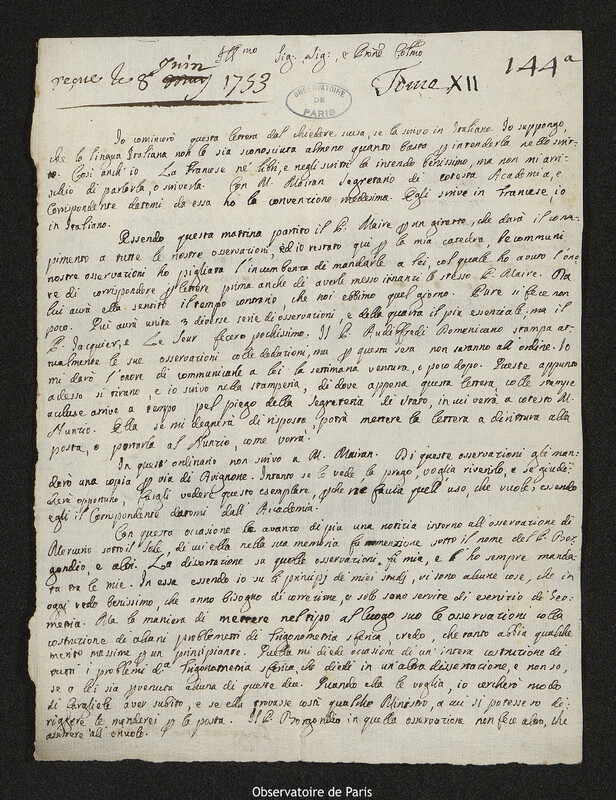 Ill.mo Sig: Sig:, e Prone Colmo
reçue le 8 Juin may 1753
Tome XII
144a
OBSERVATOIRE DE PARIS
Io comincerò questa lettera dal chiedere scusa, se la scrivo in Italiano. Io suppongo,
che la lingua Italiana non le sia sconosciuta almeno quanto basta per intenderla nello scrit-
to. Così anch'io La Francese ne' libri, e negli scritti la intendo benissimo, ma non mi arri-
schio di parlarla, o scriverla. Con M. Mairan Segretario di cotesta Accademia, e
Corrispondente datomi da essa ho la convenzione medesima. Egli scrive in Francese, io
in Italiano.
Essendo questa mattina partito il P. Maire per un giretto, che darà il com-
pimento a tutte le nostre osservazioni, ed io restato qui per la mia catedra, le communi
nostre osservazioni ho pigliata l'incumbenza di mandarle a lei, col quale ho avuto l'ono-
re di corrispondere per lettere prima anche di averle messo innanzi lo stesso P. Maire. Da
lui avrà ella sentito il tempo contrario, che noi ebbimo quel giorno. Pure si fece non
poco. Qui avrà unite 3 diverse serie di osservazioni, e della quarta il più essenziale: ma il
P. Jacquier, e Le Seur fecero pochissimo. Il P. Audiffredi Domenicano stampa at-
tualmente le sue osservazioni colle deduzioni, ma per questa sera non saranno all'ordine. Io
mi darò l'onore di communicarle a lei la settimana ventura, o poco dopo. Queste appunto
adesso si tirano, e io scrivo nella stamperia, di dove appena questa lettera, colle stampe
accluse arrive a tempo pel piego della Segreteria di Stato, in cui verrà a cotesto M.
Nunzio. Ella se mi degnerà di risposta, potrà mettere la lettera a dirittura alla
posta, o portarla al Nunzio, come vorrà.
In quest'ordinario non scrivo a M. Mairan. Di queste osservazioni gli man-
derò una copia per via di Avignone. Intanto se lo vede, la prego, voglia riverirlo, e se giudi-
cherà opportuno, fargli vedere questo esemplare, perche ne faccia quell'uso, che vuole, essendo
egli il Corrispondente datomi dall'Accademia.
Con questa occasione le avanzo di più una notizia intorno all'osservazione di
Mercurio sotto il Sole, di cui ella nella sua memoria fa menzione sotto il nome del P. Bor-
gondio, e altri. La dissertazione su quelle osservazioni, fu mia, e l'ho sempre manda-
ta tra le mie. In essa essendo io su le principj de' miei studj, vi sono alcune cose, che in
oggi vedo benissimo, che anno bisogno di correzione, e solo sono servire di esercizio di Geo-
metria. Ma la maniera di mettere nel tipo al luogo suo le osservazioni colla
costruzione di alcuni problemetti di Trigonometria sferica, credo, che tanto abbia qualche
merito massime per un principiante. Quella mi diede occasione di un'intera costruzione di
tutti i problemi di Trigonometria sferica, che diedi in un'altra dissertazione, e non so,
se a lei sia pervenuta alcuna di queste due. Quando ella le voglia, io cercherò modo
di fargliele aver subito, e se ella trovasse costì qualche Ministro, a cui si potessero di-
riggere le manderei per la posta. Il P. Borgondio in quella osservazione non fece altro, che
assistere all'orivolo.
Observatoire de Paris